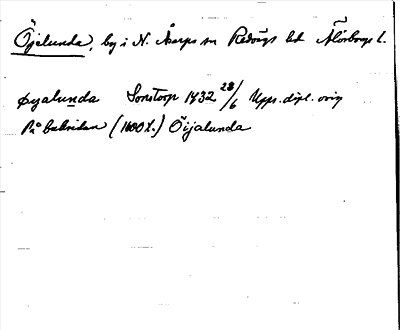 Öjelunda, by i N. Åsarps sn Redvägs hd Älvsborgs l.
øyalunda Sonstorp 1432 28/6 Upps. dipl. orig
På baksidan (1600 t.) Öijalunda